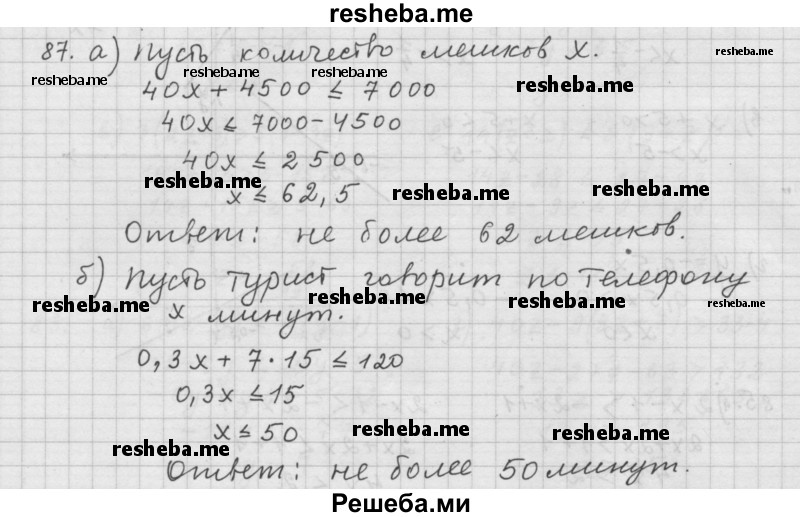 resheba.me
87. а) Пусть количество мешков x.
resheba.me
resheba.me resheba.me resheba.me
40x + 4500 ≤ 7000
resheba.me
40x ≤ 7000 - 4500
40x ≤ 2 500
resheba.me resheba.me resheba.me
x ≤ 62,5
Ответ: не более 62 мешков.
б) Пусть турист говорит по телефону
resheba.me resheba.me resheba.me resheba.me
x минут.
0,3x + 7·15 ≤ 120
0,3x ≤ 15
x ≤ 50
resheba.me resheba.me resheba.me
Ответ: не более 50 минут.
Решеба.ми